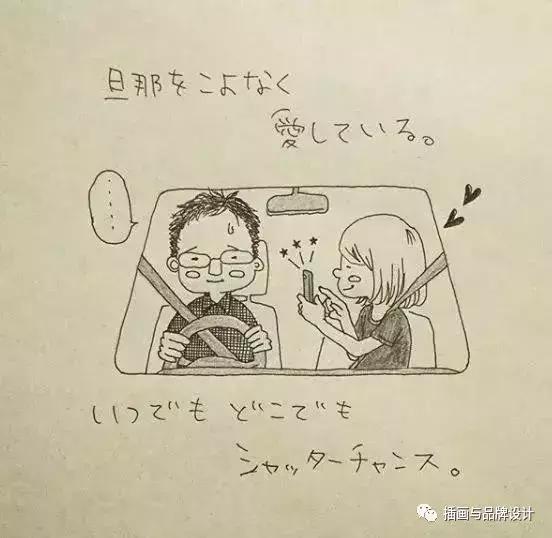 旦那をこよなく
愛している。
......
いつでも どこでも
シャッターチャンス。
插画与品牌设计